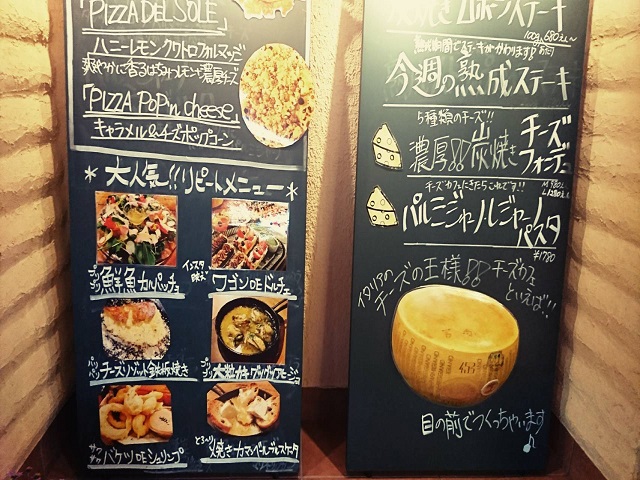 "PIZZA DEL SOLE"
ハニーレモンクワトロフォルマッジ
爽やかに香るはちみつレモンと濃厚チーズ
"PIZZA POP'n cheese"
キャラメル&チーズポップコーン
*大人気!!リピートメニュー*
プリプリ 鮮魚カルパッチョ
インスタ映え ワゴンDEドルチェ
パリパリ チーズリゾット鉄板焼き
プリプリ 大粒カキ
サクサク バケツDEシュリンプ
とろ〜り 焼きカマンベールブルスケッタ
ステーキ
100g 680え〜
今週の熟成ステーキ
5種類のチーズ!!
濃厚炭焼きチーズフォンデュ
M 980え
L 1280え
チーズカフェにきたらこれです!!
パルミジャーノレジャーノパスタ
¥1780
イタリアのチーズの王様
チーズカフェといえば!!
目の前でつくっちゃいます♪